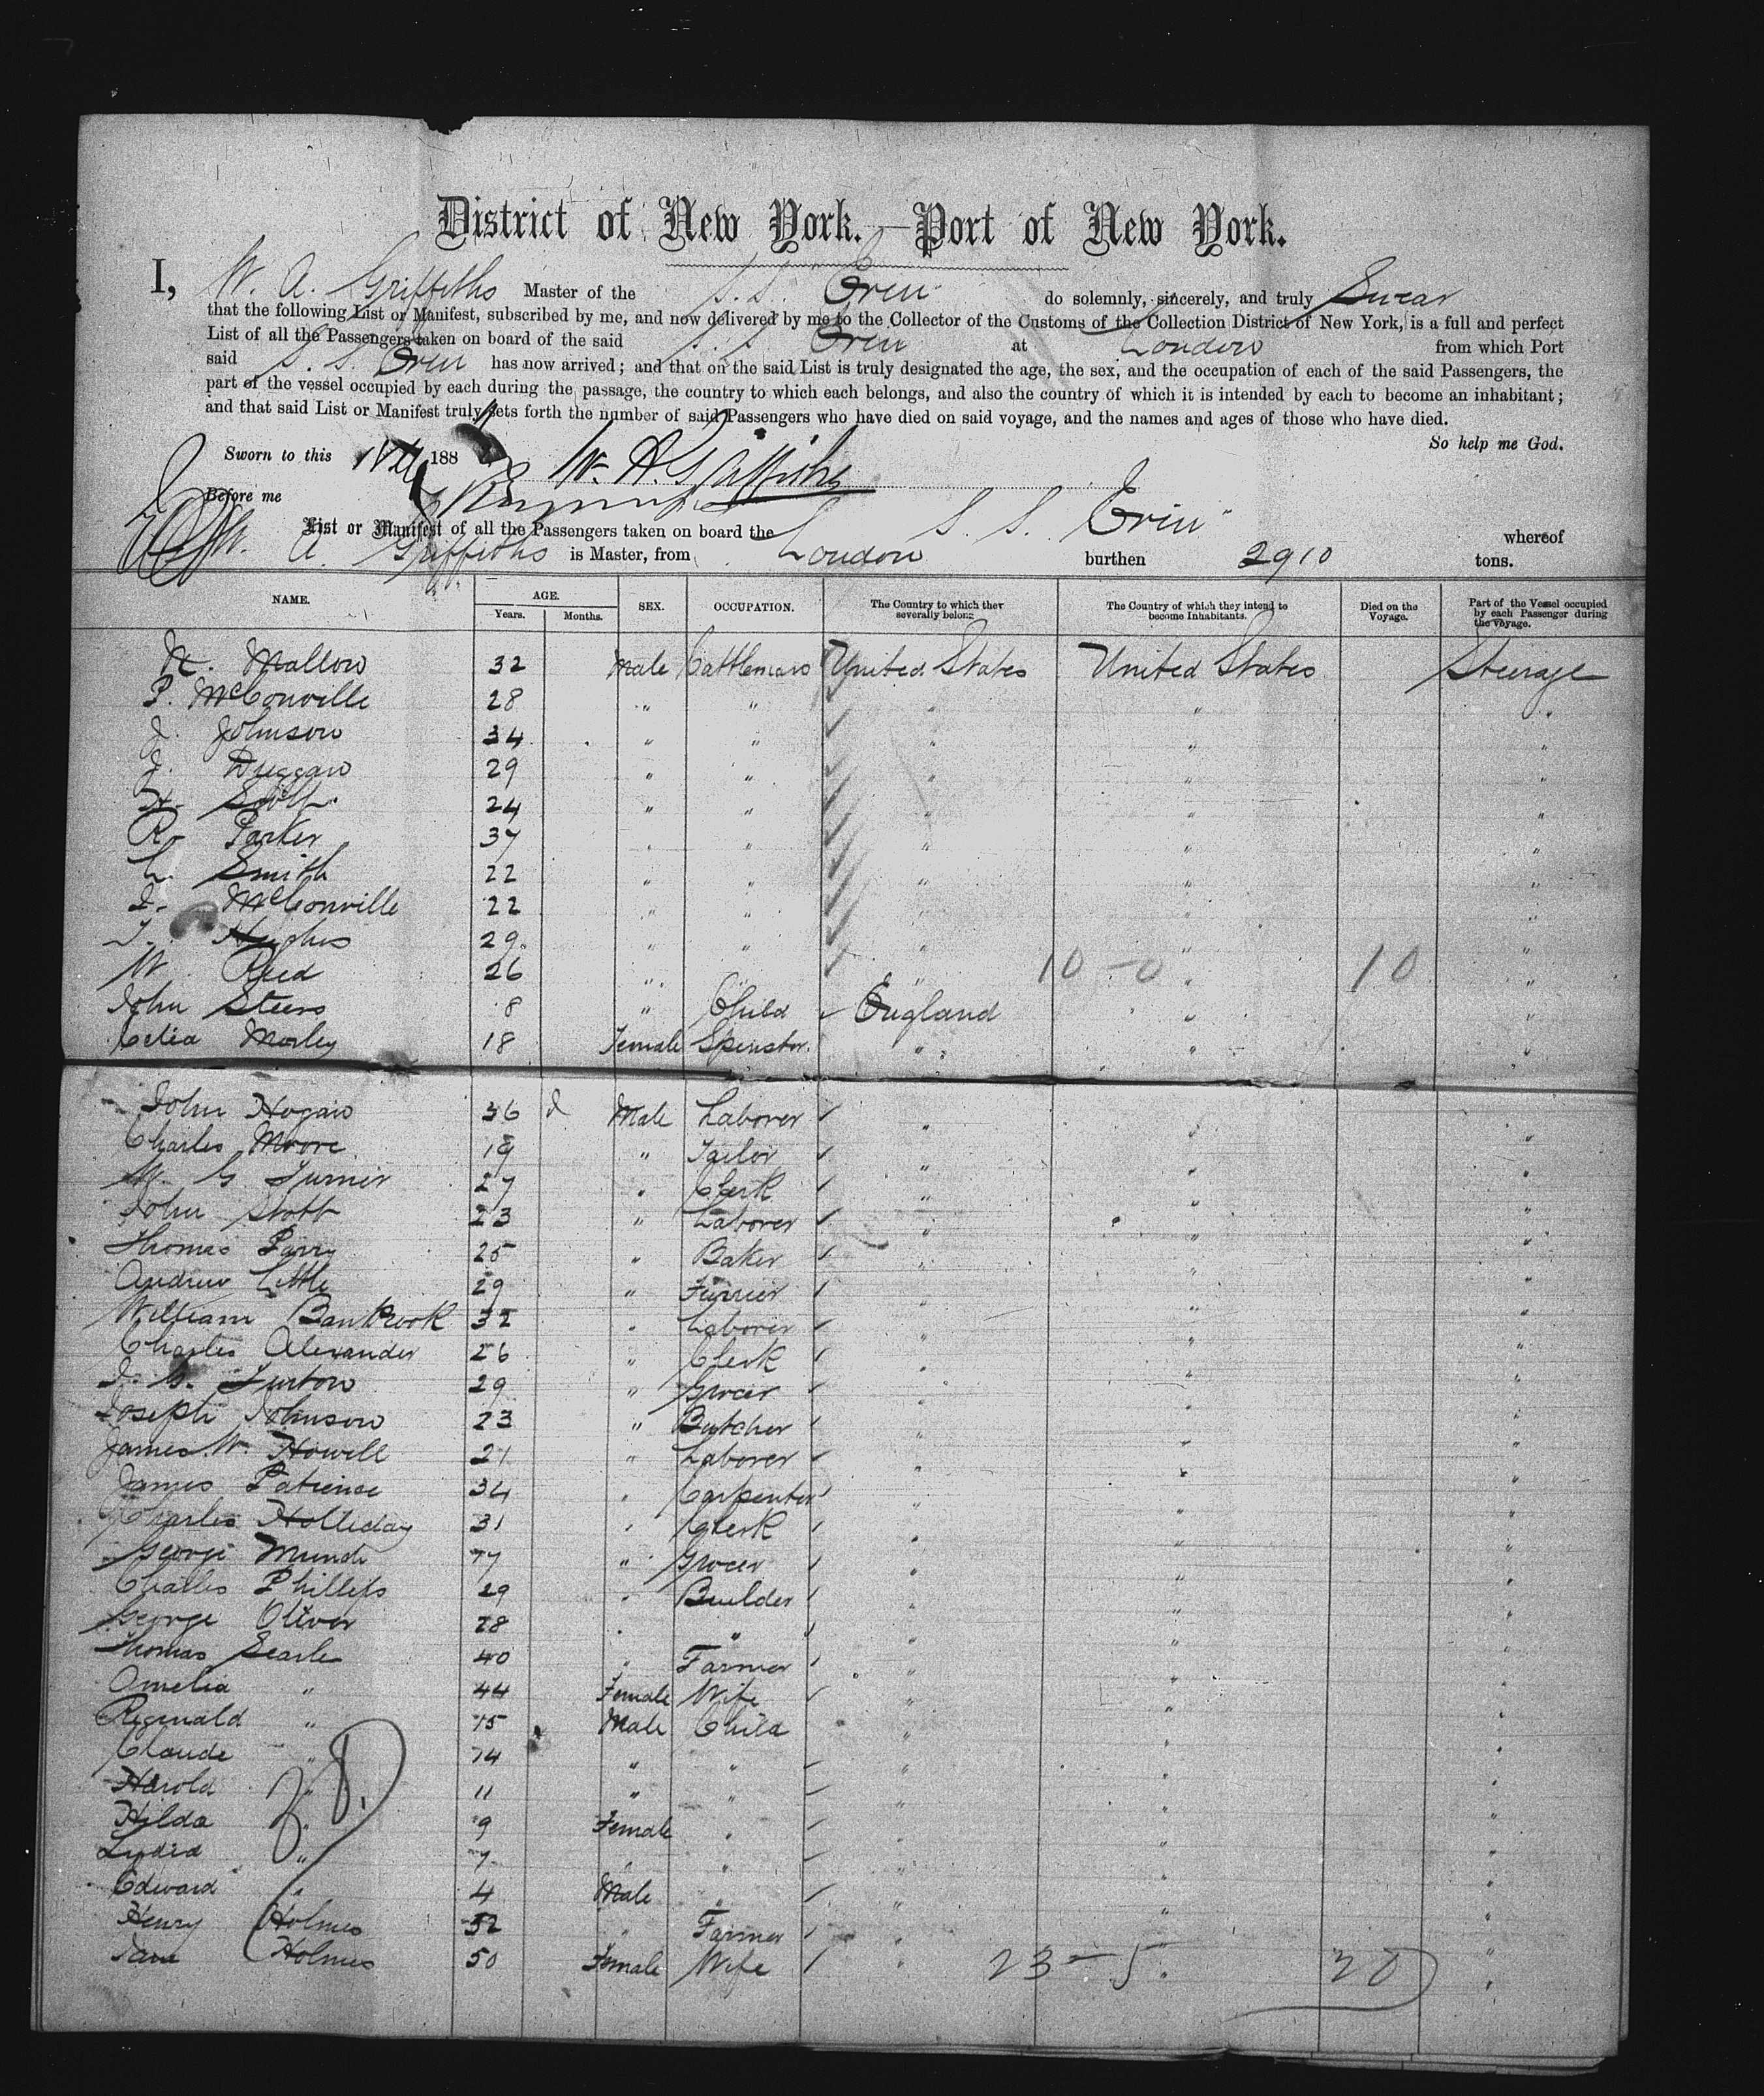 District of New York.—Port of New York.
I, W. A. Griffiths Master of the S.S. Erin do solemnly, sincerely, and truly Swear
that the following List or Manifest, subscribed by me, and now delivered by me to the Collector of the Customs of the Collection District of New York, is a full and perfect
List of all the Passengers taken on board of the said S.S. Erin at London from which Port
said S.S. Erin has now arrived; and that on the said List is truly designated the age, the sex, and the occupation of each of the said Passengers, the
part of the vessel occupied by each during the passage, the country to which each belongs, and also the country of which it is intended by each to become an inhabitant;
and that said List or Manifest truly sets forth the number of said Passengers who have died on said voyage, and the names and ages of those who have died.
So help me God.
Sworn to this 188 W. A. Griffiths
Before me
List or Manifest of all the Passengers taken on board the S. S. Erin whereof
W. A. Griffiths is Master, from London burthen 2910 tons.
NAME. AGE. Years. Months. SEX. OCCUPATION. The Country to which they severally belong The Country of which they intend to become Inhabitants. Died on the Voyage. Part of the Vessel occupied by each Passenger during the Voyage.
Mallow 32 Male Cattleman United States United States Steerage
P. McConville 28 " " " " "
J. Johnson 34 " " " " "
J. Duggan 29 " " " " "
24 " " " " "
R. Parker 37 " " " " "
Smith 22 " " " " "
McConville 22 " " " " "
T. Hughes 29 " " " " "
W. Reed 26 " " " 10-0 " 10 "
John Steers 8 " Child England " "
Celia Morley 18 Female Spinster " " "
John Hogan 36 Male Laborer " " "
Charles Moore 19 " Tailor " " "
W. G. Turner 27 " Clerk " " "
John Stott 23 " Laborer " " "
Thomas Parry 25 " Baker " " "
Andrew Little 29 " Furrier " " "
William Bankcook 32 " Laborer " " "
Charles Alexander 26 " Clerk " " "
J. G. Turton 29 " Grocer " " "
Joseph Johnson 23 " Butcher " " "
James W. Howell 21 " Laborer " " "
James Patience 34 " Carpenter " " "
Charles Holliday 31 " Clerk " " "
George 17 " Grocer " " "
Charles Phillips 29 " Builder " " "
George Oliver 28 " " " " "
Thomas Searle 40 " Farmer " " "
Amelia " 44 Female Wife " " "
Reginald " 15 Male Child " " "
Claude " 14 " " " " "
Harold " 11 " " " " "
Hilda " 9 Female " " " "
Lydia " 7 " " " " "
Edward " 4 Male " " " "
Henry Holmes 52 " Farmer " " "
Jane Holmes 50 Female Wife " 23-5 " 28 "